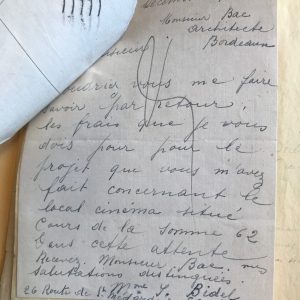 Monsieur Bac
Architecte
Bordeaux
Monsieur
Voudriez vous me faire
savoir par retour,
les frais que je vous
dois pour pour le
projet que vous m'avez
fait concernant le
local cinéma situé
Cours de la Somme 62
Dans cette attente
Recevez, Monsieur Bac, mes
salutations distinguées.
Mme
26 Route de St Médard